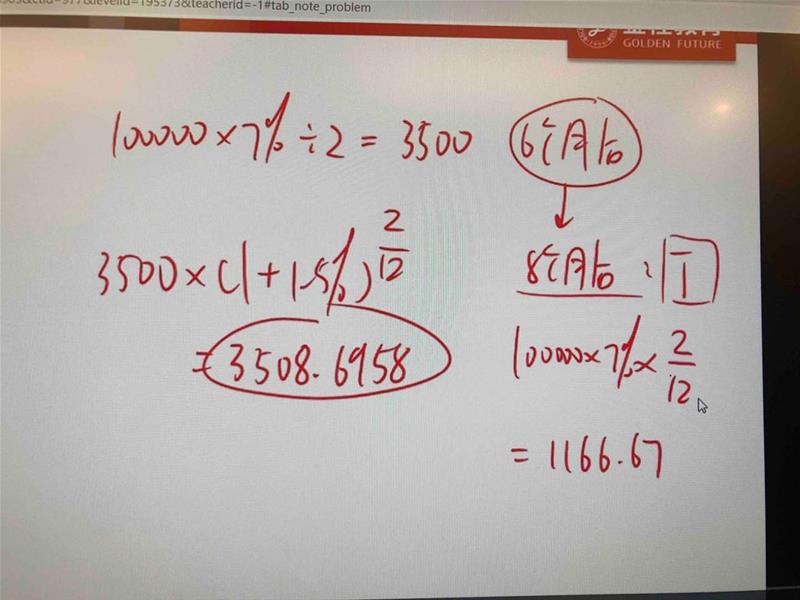 &levelid=195373&teacherid=-1#tab_note_problem
GOLDEN FUTURE
100000×7%÷2=3500
6个月后
3500×(1+1.5%)^(2/12)
8个月后:I
=3508.6958
100000×7%×2/12
=1166.67